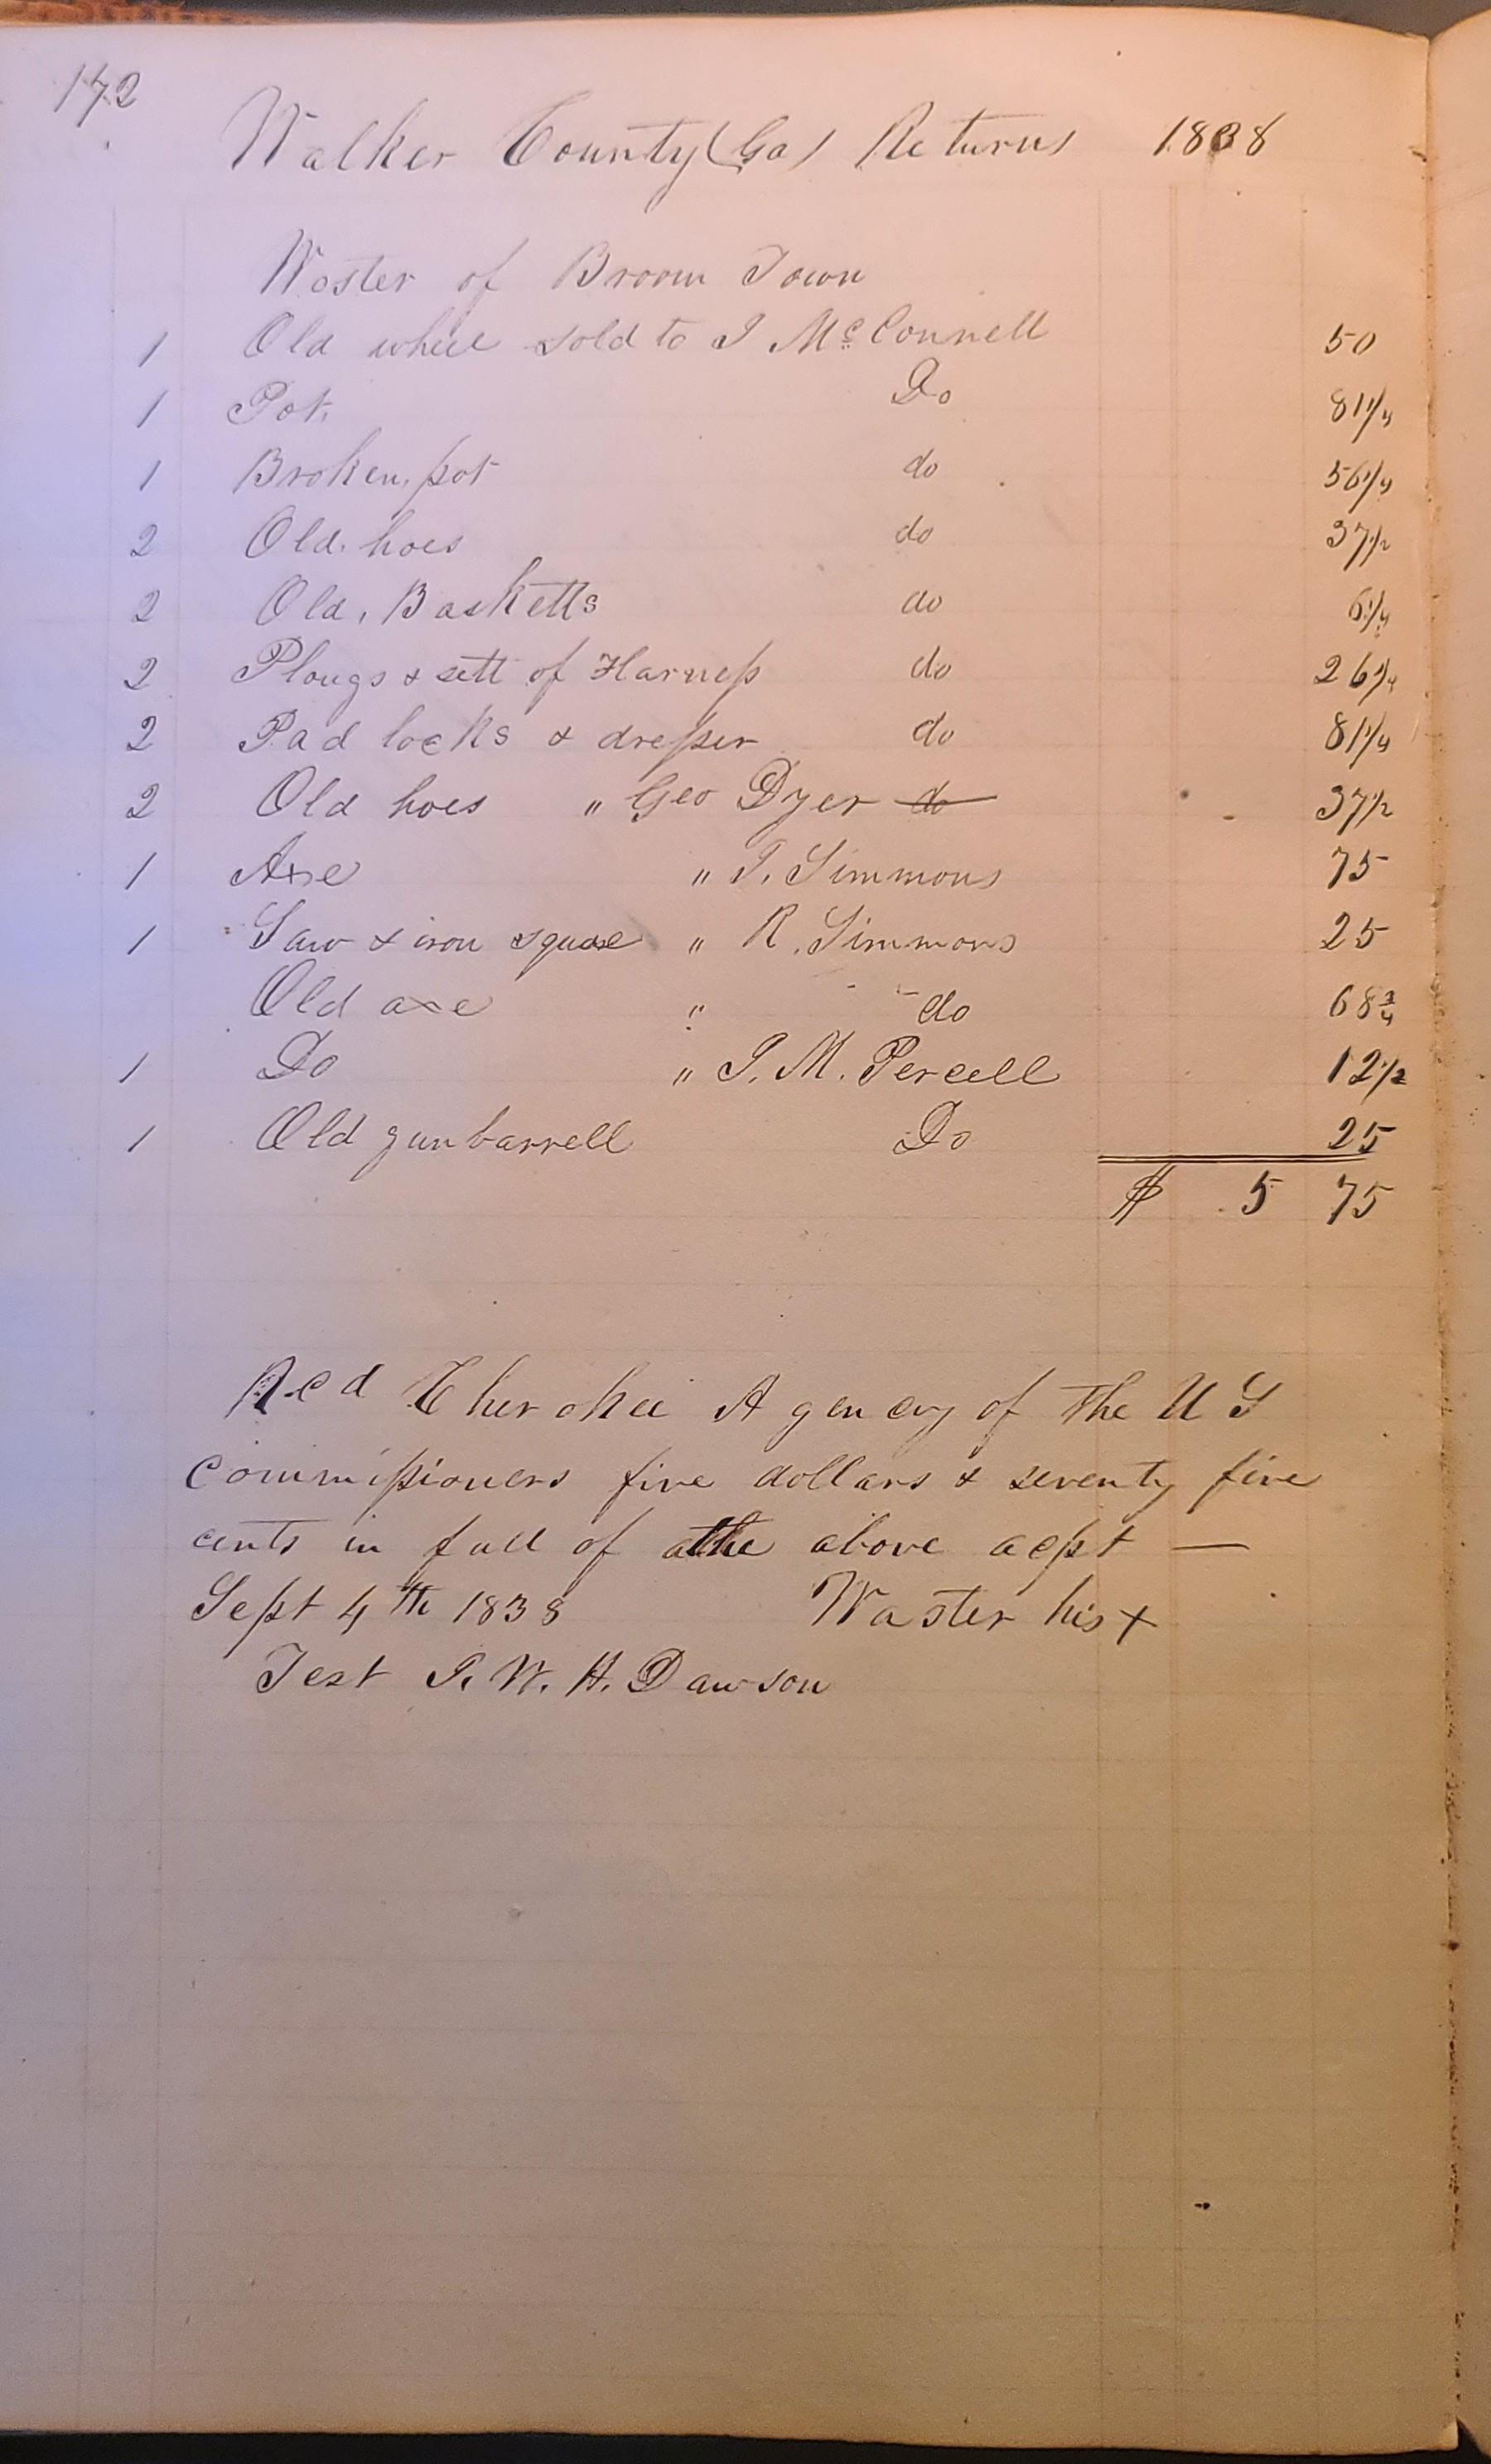 172
Walker County (Ga) Returns 1838
Waster of Broom Town
1 Old wheel sold to J McConnell 50
1 Pot. Do 81 1/4
1 Broken pot do 56 1/4
2 Old hoes do 37 1/2
2 Old Basketts do 6 1/4
2 Plougs & sett of Harness do 26 1/4
2 Pad locks & dresser do 81 1/4
2 Old hoes " Geo Dyer do 37 1/2
1 Axe " J. Simmons 75
1 Saw & iron square " R. Simmons 25
Old axe " do 68 3/4
1 Do " J. M. Percell 12 1/2
1 Old gunbarrell Do 25
$ 5 75
Recd Cherokee Agency of the U S
Commissioners five dollars & seventy five
cents in full of the above acpt —
Sept 4th 1838 Waster his x
Test J. W. H. Dawson